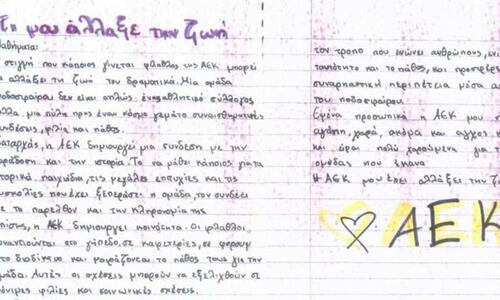 Τι μου άλλαξε την ζωή
Μαθήματα:
στιγμή που κάποιος γίνεται φίλαθλος της ΑΕΚ μπορεί
α αλλάξει τη ζωή του δραματικά. Μια ομάδα
ποδοσφαίρου δεν είναι απλώς ένας αθλητικός σύλλογος
αλλά μια πύλη προς έναν κόσμο γεμάτο συναισθηματικές
συνδέσεις, φιλία και πάθος.
αταρχάς, η ΑΕΚ δημιουργεί μια σύνδεση με την
αράδοση και την ιστορία. Το να μάθει κάποιος για τα
τορικά παιχνίδια, τις μεγάλες επιτυχίες και τις
υσκολίες που έχει ξεπεράσει η ομάδα, τον συνδέει
ε το παρελθόν και την κληρονομιά της
πίσης, η ΑΕΚ δημιουργεί κοινότητα. Οι φίλαθλοι
υναντιούνται στο γήπεδο, σε καφετέριες, σε φόρουμ
το διαδίκτυο και μοιράζονται το πάθος τους για την
μάδα. Αυτές οι σχέσεις μπορούν να εξελιχθούν σε
όνιμες φιλίες και κοινωνικές σχέσεις.
τον τρόπο που ενώνει ανθρώπους, εν
ταυτότητα και το πάθος, και προσφέρε
συναρπαστική περιπέτεια μέσα α
του ποδοσφαίρου.
Εμένα προσωπικά η ΑΕΚ μου
αγάπη, χαρά, ακόμα και άγχος
και είμαι πολύ χαρούμενη για τ
ομάδας που έκανα
Η ΑΕΚ μου έχει αλλάξει την ζ
ΑΕΚ